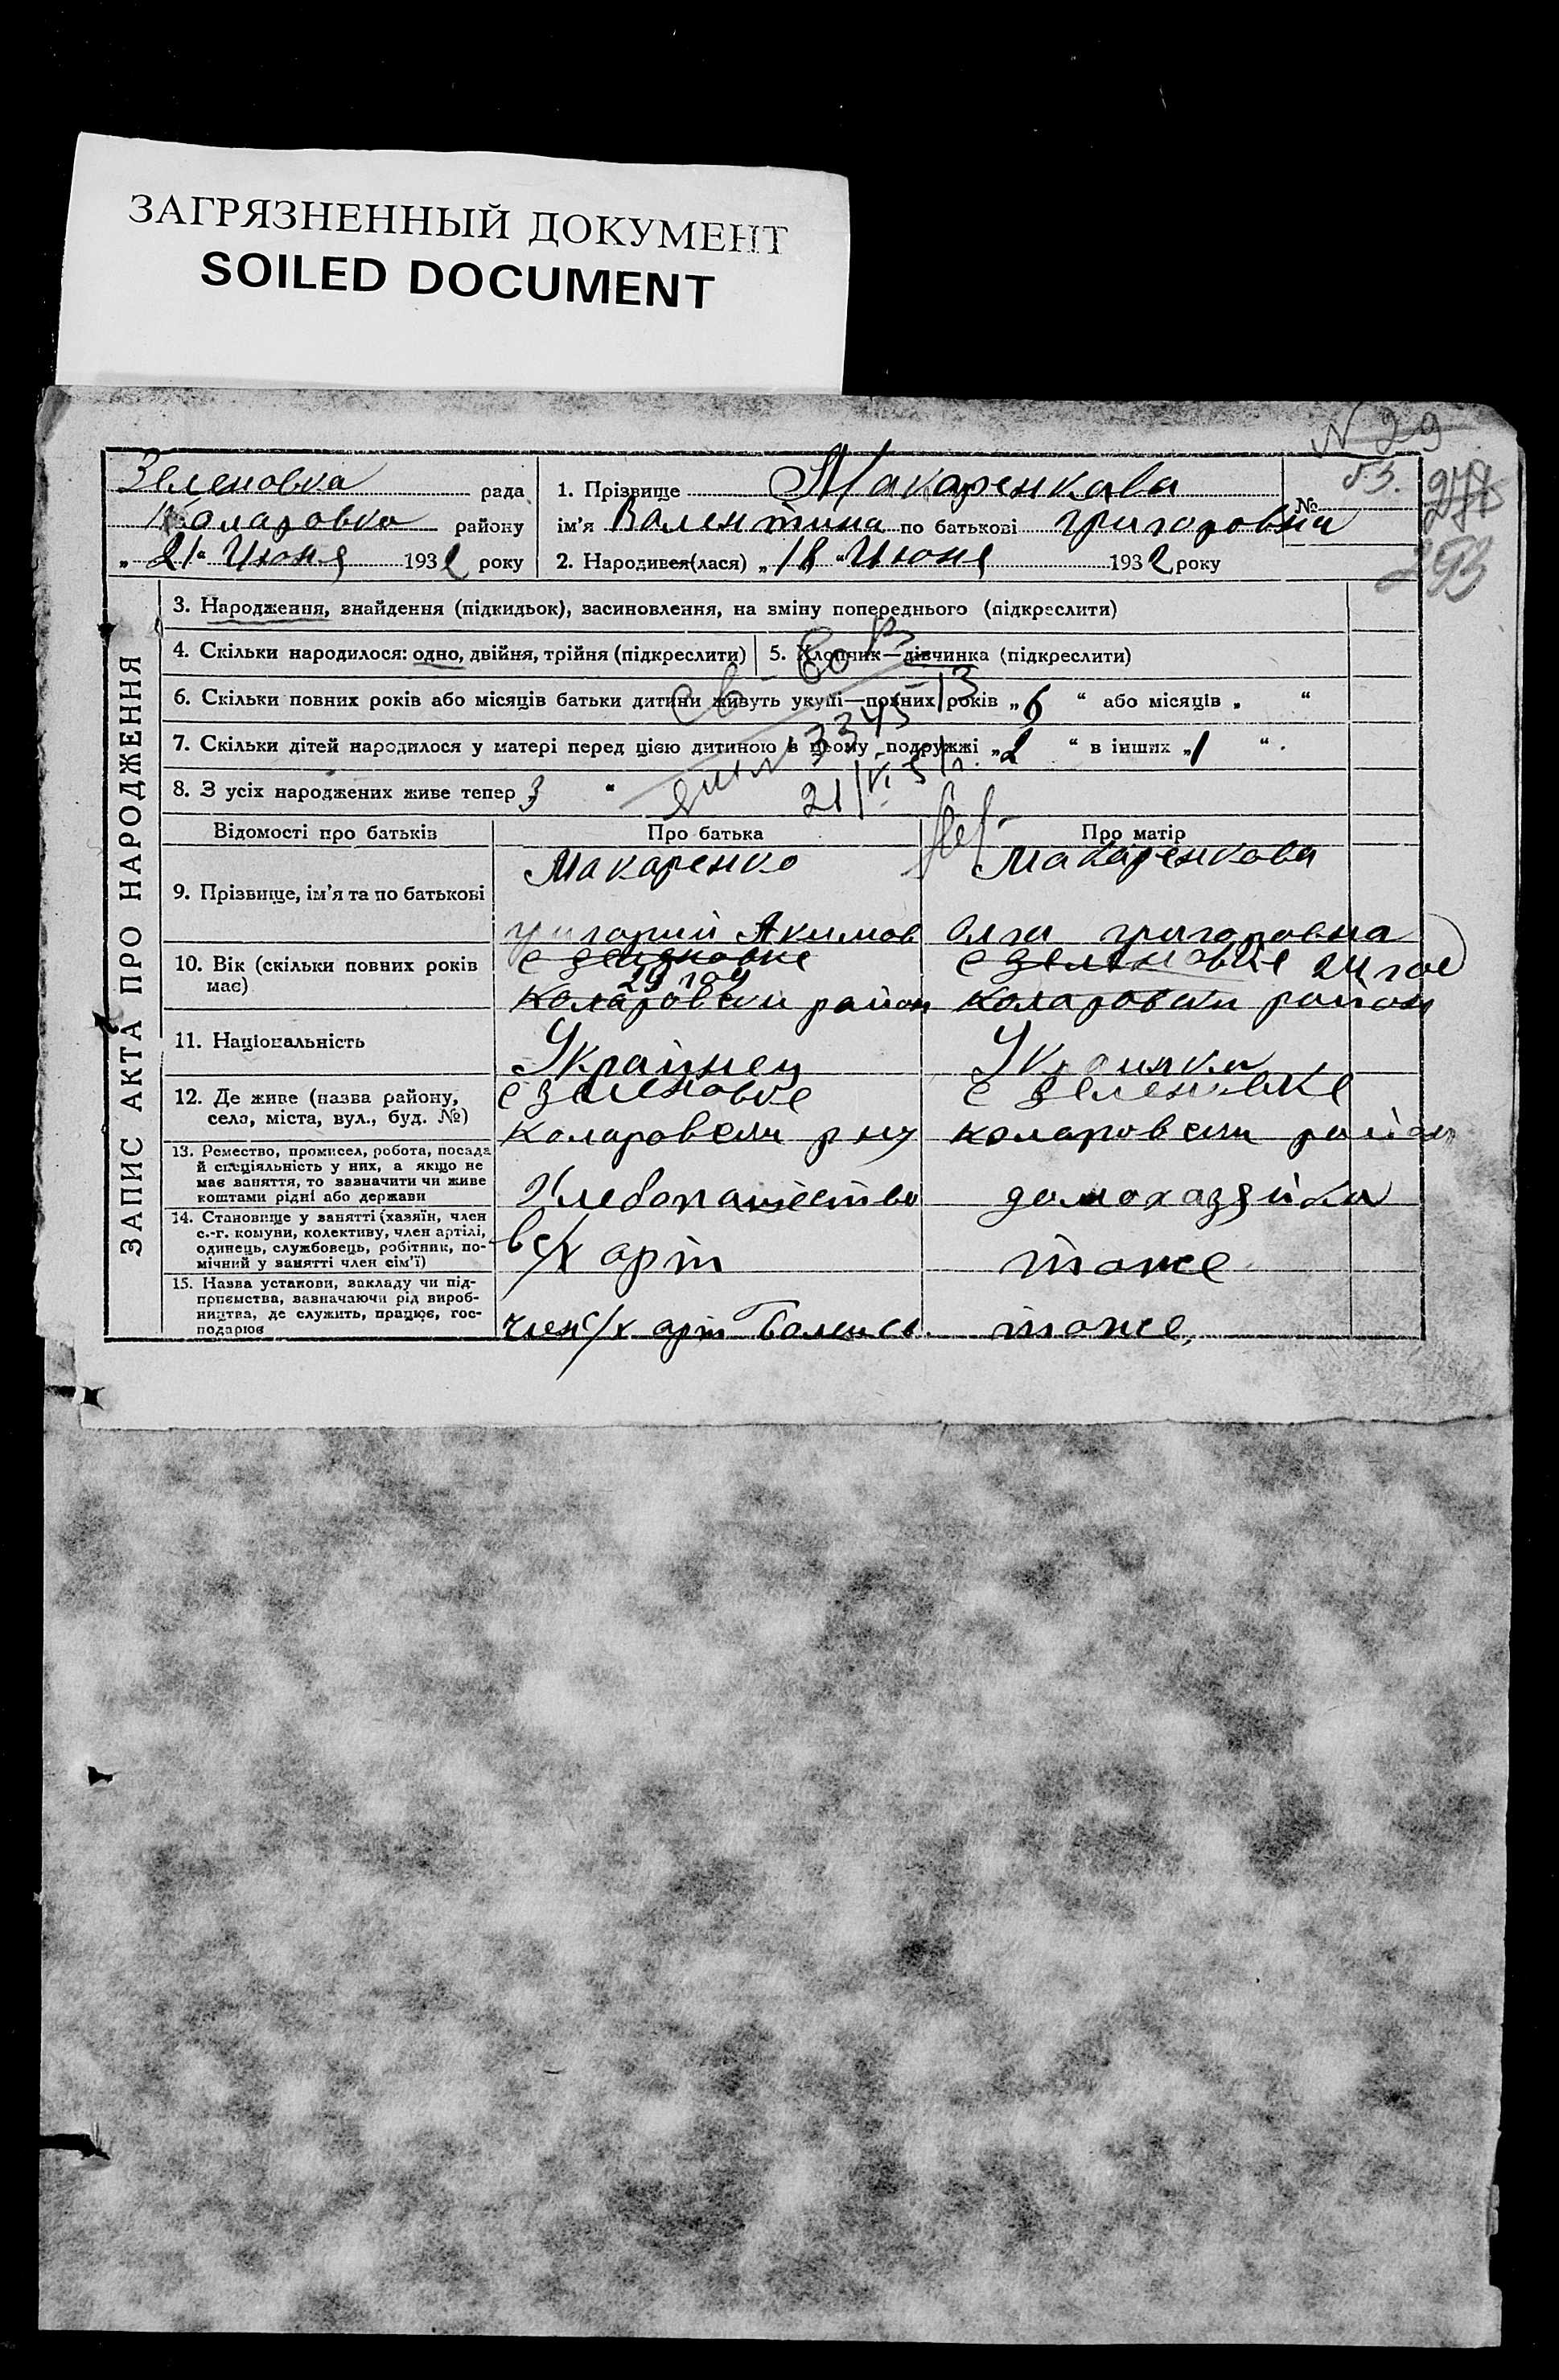 ЗАГРЯЗНЕННЫЙ ДОКУМЕНТ
SOILED DOCUMENT
N 29
53.
293
Зеленовка рада
Коларовка району
„ 21 “ Июня 1932 року
1. Прізвище Макаренкова №
ім'я Валентина по батькові григоровна
2. Народився(лася) „ 18 “ Июня 1932 року
ЗАПИС АКТА ПРО НАРОДЖЕННЯ
3. Народження, знайдення (підкидьок), засиновлення, на зміну попереднього (підкреслити)
4. Скільки народилося: одно, двійня, трійня (підкреслити)
5. Хлопчик—дівчинка (підкреслити)
6. Скільки повних років або місяців батьки дитини живуть укупі—повних років „ 6 “ або місяців „ “
7. Скільки дітей народилося у матері перед цією дитиною в цьому подружжі „ 2 “ в інших „ 1 “.
8. З усіх народжених живе тепер 3 “
21/VI
Відомості про батьків Про батька Про матір
9. Прізвище, ім'я та по батькові
Макаренко
григорий Акимов
Макаренкова
Олга григоровна
10. Вік (скільки повних років має)
с зеленовке
29 год
Коларовски район
с зеленовке 24 год
коларовски район
11. Національність
Украинец
Украинка
12. Де живе (назва району, села, міста, вул., буд. №)
с зеленовке
коларовски рну
с зеленовке
коларовски район
13. Ремество, промисел, робота, посада й спеціяльність у них, а якщо не має заняття, то зазначити чи живе коштами рідні або держави
Хлебопашество
домохазяйка
14. Становище у занятті (хазяїн, член с.-г. комуни, колективу, член артілі, одинець, службовець, робітник, помічний у занятті член сім'ї)
в с/х арт
тоже
15. Назва установи, закладу чи підприємства, вазначаючи рід виробництва, де служить, працює, господарює
член с/х арт
тоже,